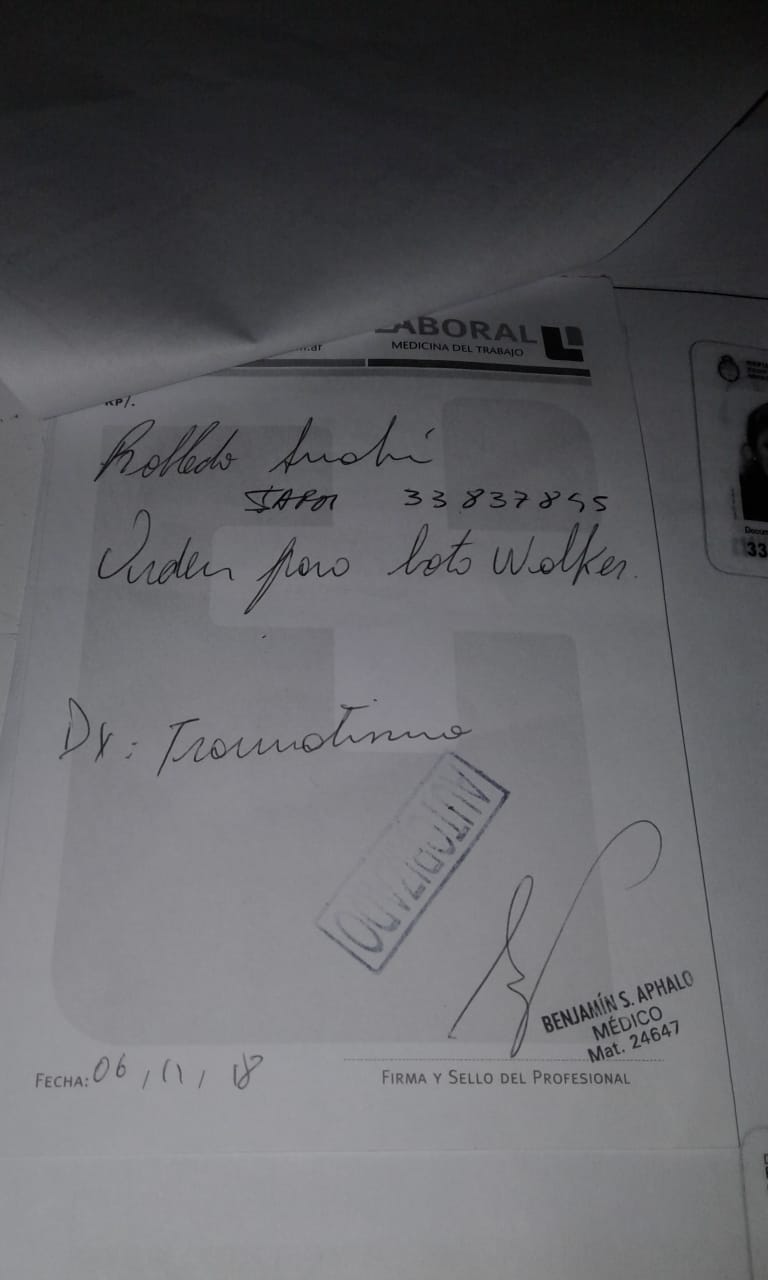 LABORAL
MEDICINA DEL TRABAJO
RP/.
Robledo
33837895
Orden para bota Walker.
Dx: Traumatismo
AUTORIZADO
BENJAMÍN S. APHALO
MÉDICO
Mat. 24647
FECHA: 06 / 11 / 18
FIRMA Y SELLO DEL PROFESIONAL
33